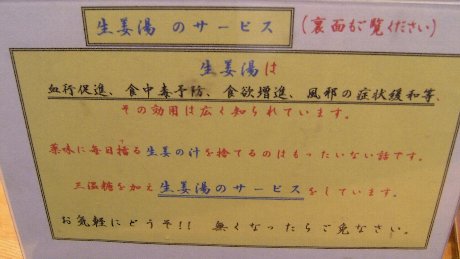 生姜湯 のサービス (裏面もご覧ください)
生姜湯は
血行促進、食中毒予防、食欲増進、風邪の症状緩和等、
その効用は広く知られています。
薬味に毎日搾る生姜の汁を捨てるのはもったいない話です。
三温糖を加え生姜湯のサービスをしています。
お気軽にどうぞ!! 無くなったらご免なさい。